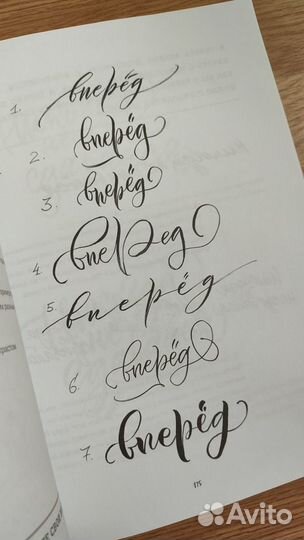 1. вперёд
2. вперёд
3. вперёд
4. вперед
5. вперёд
6. вперёд
7. вперёд
175
Avito